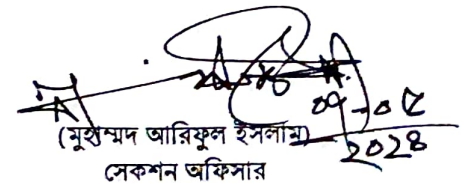 ০৭-০৫
২০২৪
(মুহাম্মদ আরিফুল ইসলাম)
সেকশন অফিসার